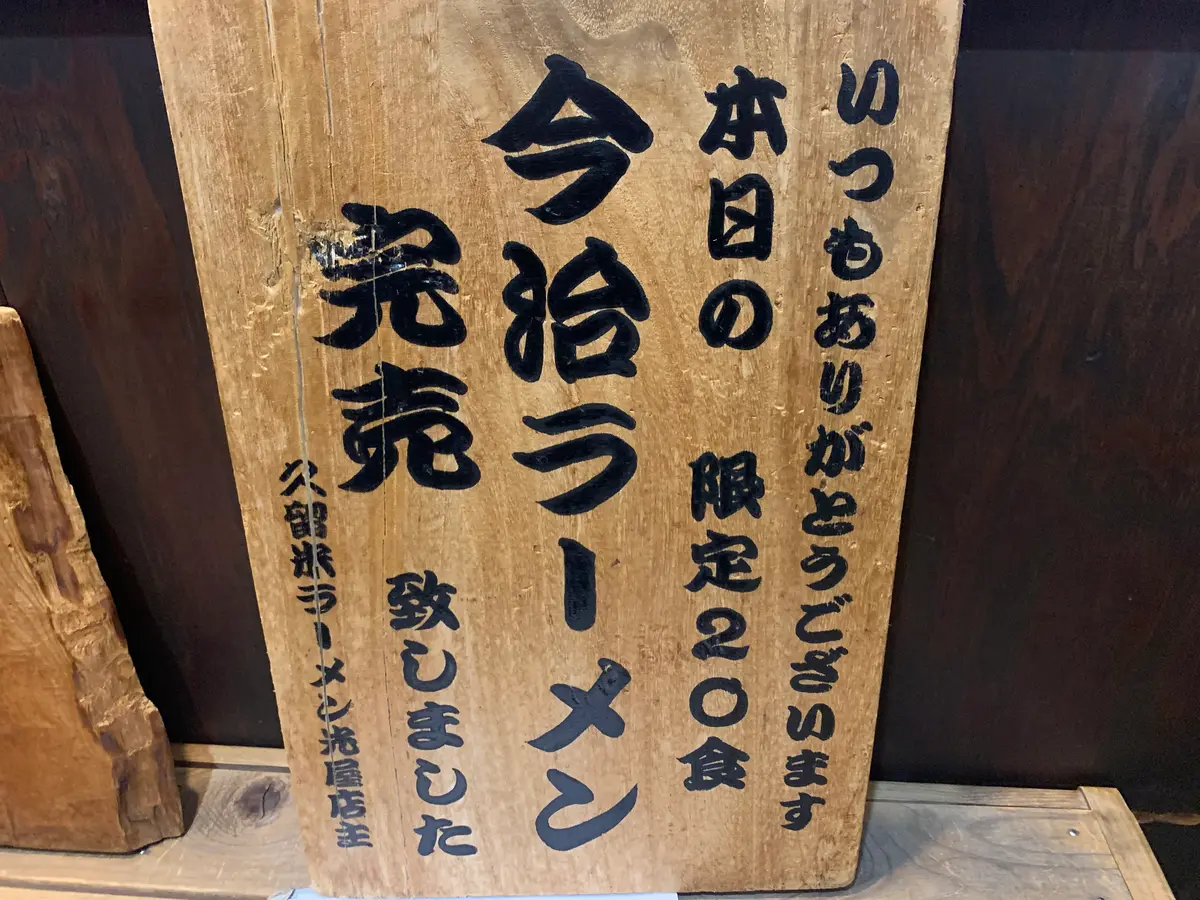 いつもありがとうございます
本日の 限定20食
今治ラーメン
完売 致しました
久留米ラーメン光屋店主